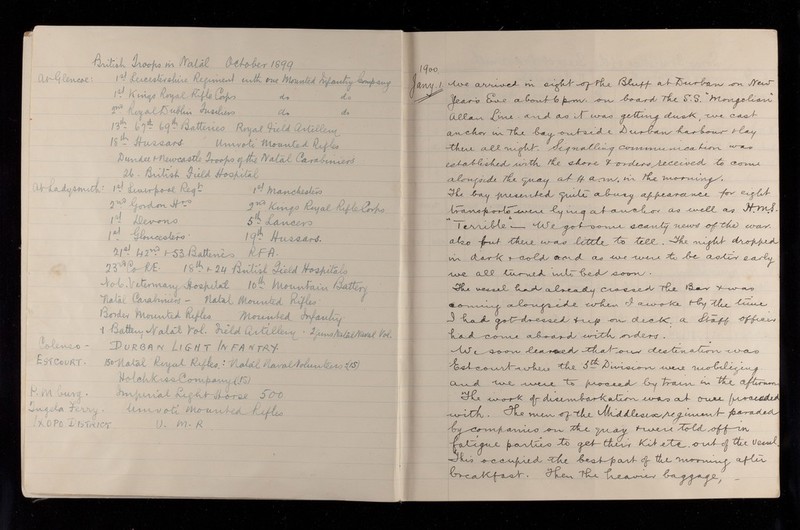 British Troops in Natal October 1899
At Glencoe: 1st Leicestershire Regiment with one Mounted Infantry Company
1st Kings Royal Rifle Corps do do
2nd Royal Dublin Fusiliers do do
13th 67th 69th Batteries Royal Field Artillery
18th Hussars Umvoti Mounted Rifles
Dundee & Newcastle Troops of the Natal Carabineers
26 - British Field Hospital
At Ladysmith: 1st Liverpool Regt 1st Manchesters
2nd Gordon Hrs 2nd Kings Royal Rifle Corps
1st Devons 5th Lancers
1st Gloucesters 19th Hussars.
21st 42nd & 53 Batteries R.F.A.
23rd Co. R.E. 18th & 24 British Field Hospitals
No 6. Veterinary Hospital 10th Mountain Battery
Natal Carabineers - Natal Mounted Rifles
Border Mounted Rifles Mounted Infantry
1 Battery Natal Vol. Field Artillery - 2 guns Natal Naval Vol.
Colenso - DURBAN LIGHT INFANTRY
ESTCOURT - Natal Royal Rifles: Natal Naval Volunteers
Hotchkiss Company
P.M. Burg - Imperial Light Horse 500
Tugela Ferry. Umvoti Mounted Rifles
IXOPO DISTRICT U. M. R
1900
Jany. 1 We arrived in sight of the Bluff at Durban on New
Year's Eve about 6 pm. on board the S.S. "Mongolian"
Allan Line. and as it was getting dusk, we cast
anchor in the bay outside Durban harbour & lay
there all night. Signalling communication was
established with the shore & orders received to come
alongside the quay at 4 a.m. in the morning.
The bay presented quite a busy appearance for eight
transports were lying at anchor as well as H.M.S.
"Terrible" — We got some scanty news of the war
also but there was little to tell. The night dropped
in dark & cold and as we were to be astir early
we all turned into bed soon.
The vessel had already crossed the Bar & was
coming alongside when I awoke & by the time
I had got dressed & up on deck, a Staff officer
had come aboard with orders.
We soon learned that our destination was
Estcourt where the 5th Division were mobilizing
and we were to proceed by train in the afternoon
The work of disembarkation was at once proceeded
with. The men of the Middlesex regiment paraded
by companies on the quay & were told off in
fatigue parties to get their Kit etc. out of the vessel
This occupied the best part of the morning after
breakfast. Then the heavier baggage, -